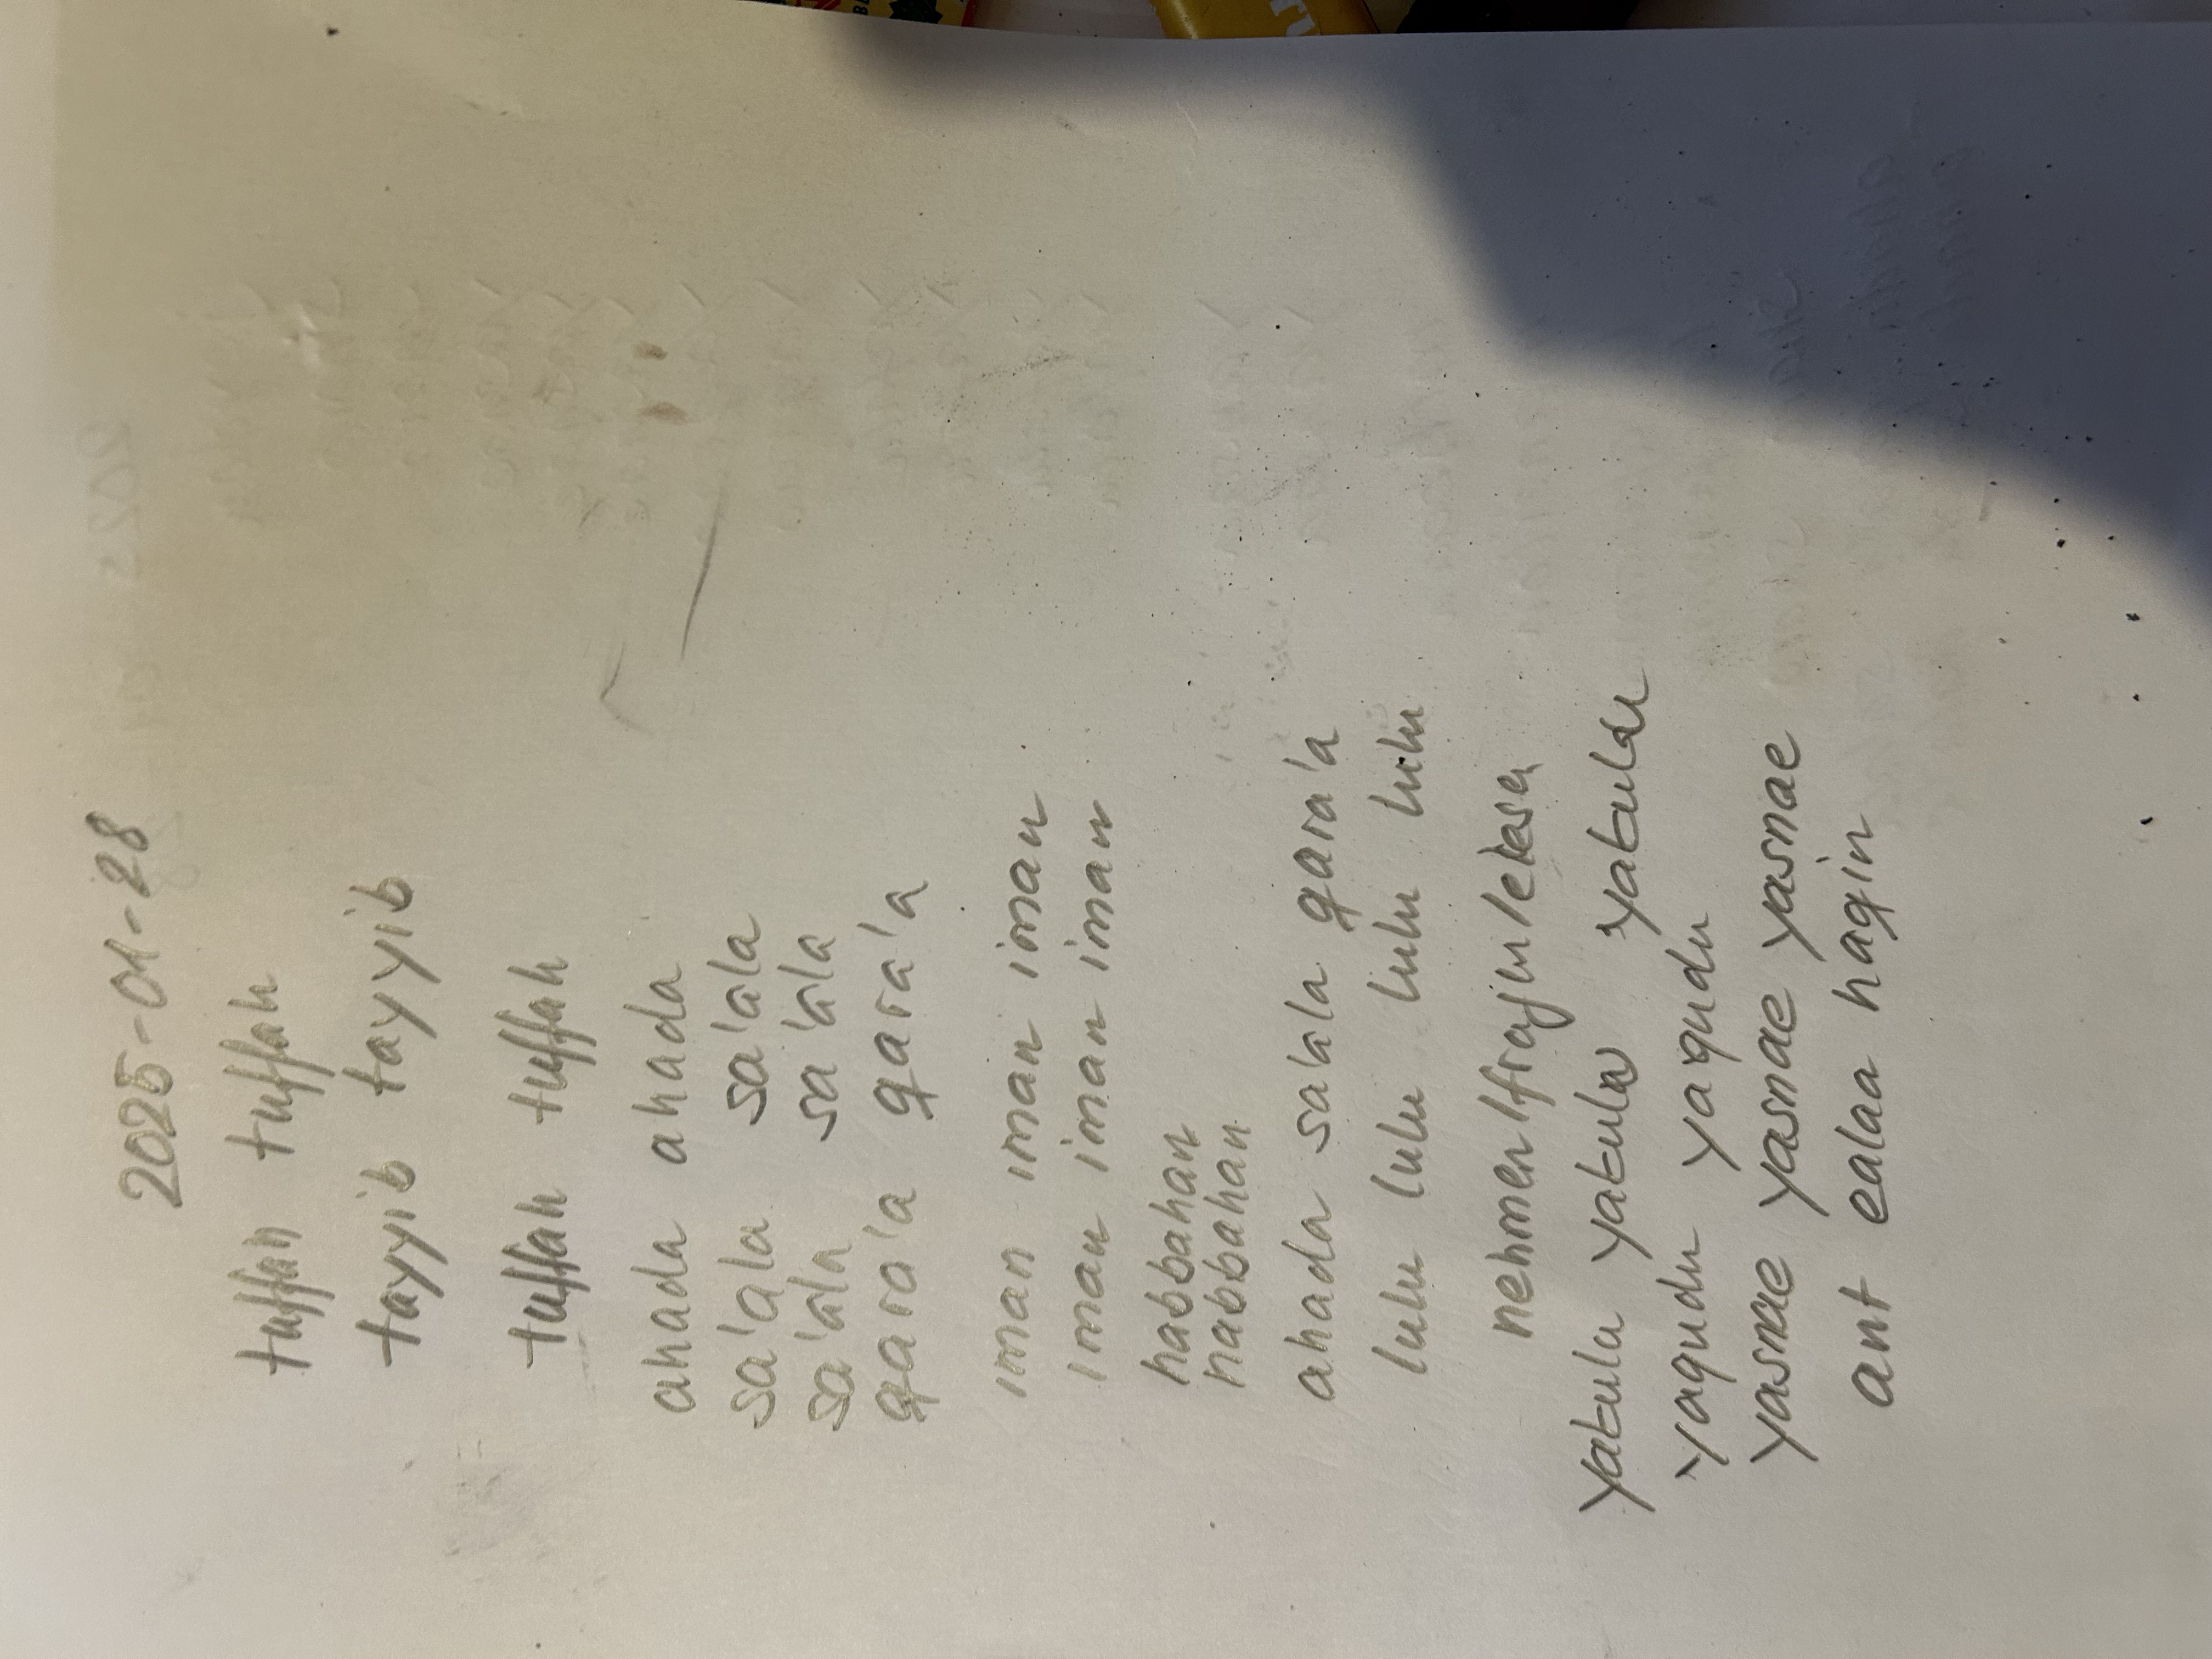 2025-01-28
tuffah tuffah
tayyib tayyib
tuffah tuffah
ahada ahada
sa'ala sa'ala
sa'ala sa'ala
qara'a qara'a
iman iman iman
iman iman iman
habbahan
habbahan
ahada sa'ala qara'a
lulu lulu lulu lulu
nehmen/fragen/
yakulu yakulu yakulu
yaqudu yaqudu
yasnae yasnae yasnae
ant ealaa haqin